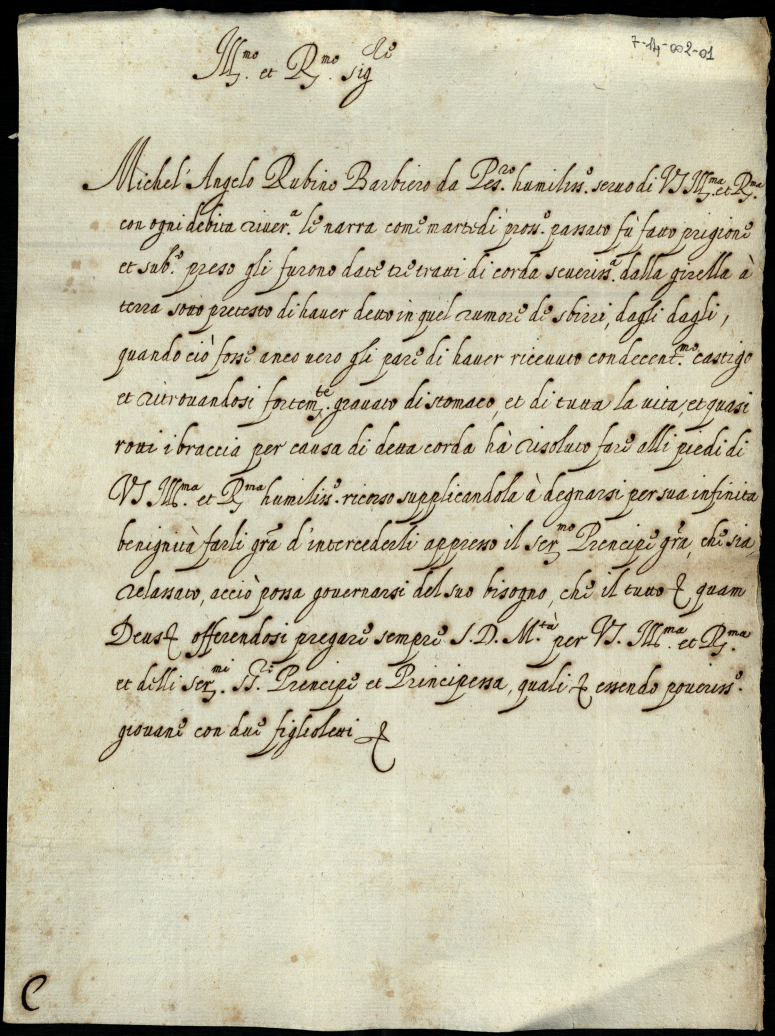 7-14-002-01
Ill.mo et R.mo sig.re
Michel'Angelo Rubino Barbiero da Pes.ro humiliss.o seruo di VS Ill.ma et R.ma
con ogni debita riuer.a le narra come martedi pross.o passato fù fatto prigione
et sub.o preso gli furono date tre tratti di corda seueriss.a dalla girella à
terra sotto pretesto di hauer detto in quel rumore de sbirri, dagli dagli,
quando ciò fosse anco uero gli pare di hauer riceuuto condecent.mo castigo
et ritrouandosi fortem.te grauato di stomaco, et di tutta la uita, et quasi
rotti i braccia per causa di detta corda hà risoluto fare alli piedi di
VS Ill.ma et R.ma humiliss.o ricorso supplicandola à degnarsi per sua infinita
benignità farli gra d'intercederli appresso il ser.mo Prencipe gra, che sia
relassato, acciò possa gouernarsi del suo bisogno, che il tutto & quam
Deus & offerendosi pregare sempre S.D.M.tà per VS. Ill.ma et R.ma
et delli ser.mi SS.ri Prencipe et Principessa, quali & essendo poueriss.o
giouane con due figlioletti &
C